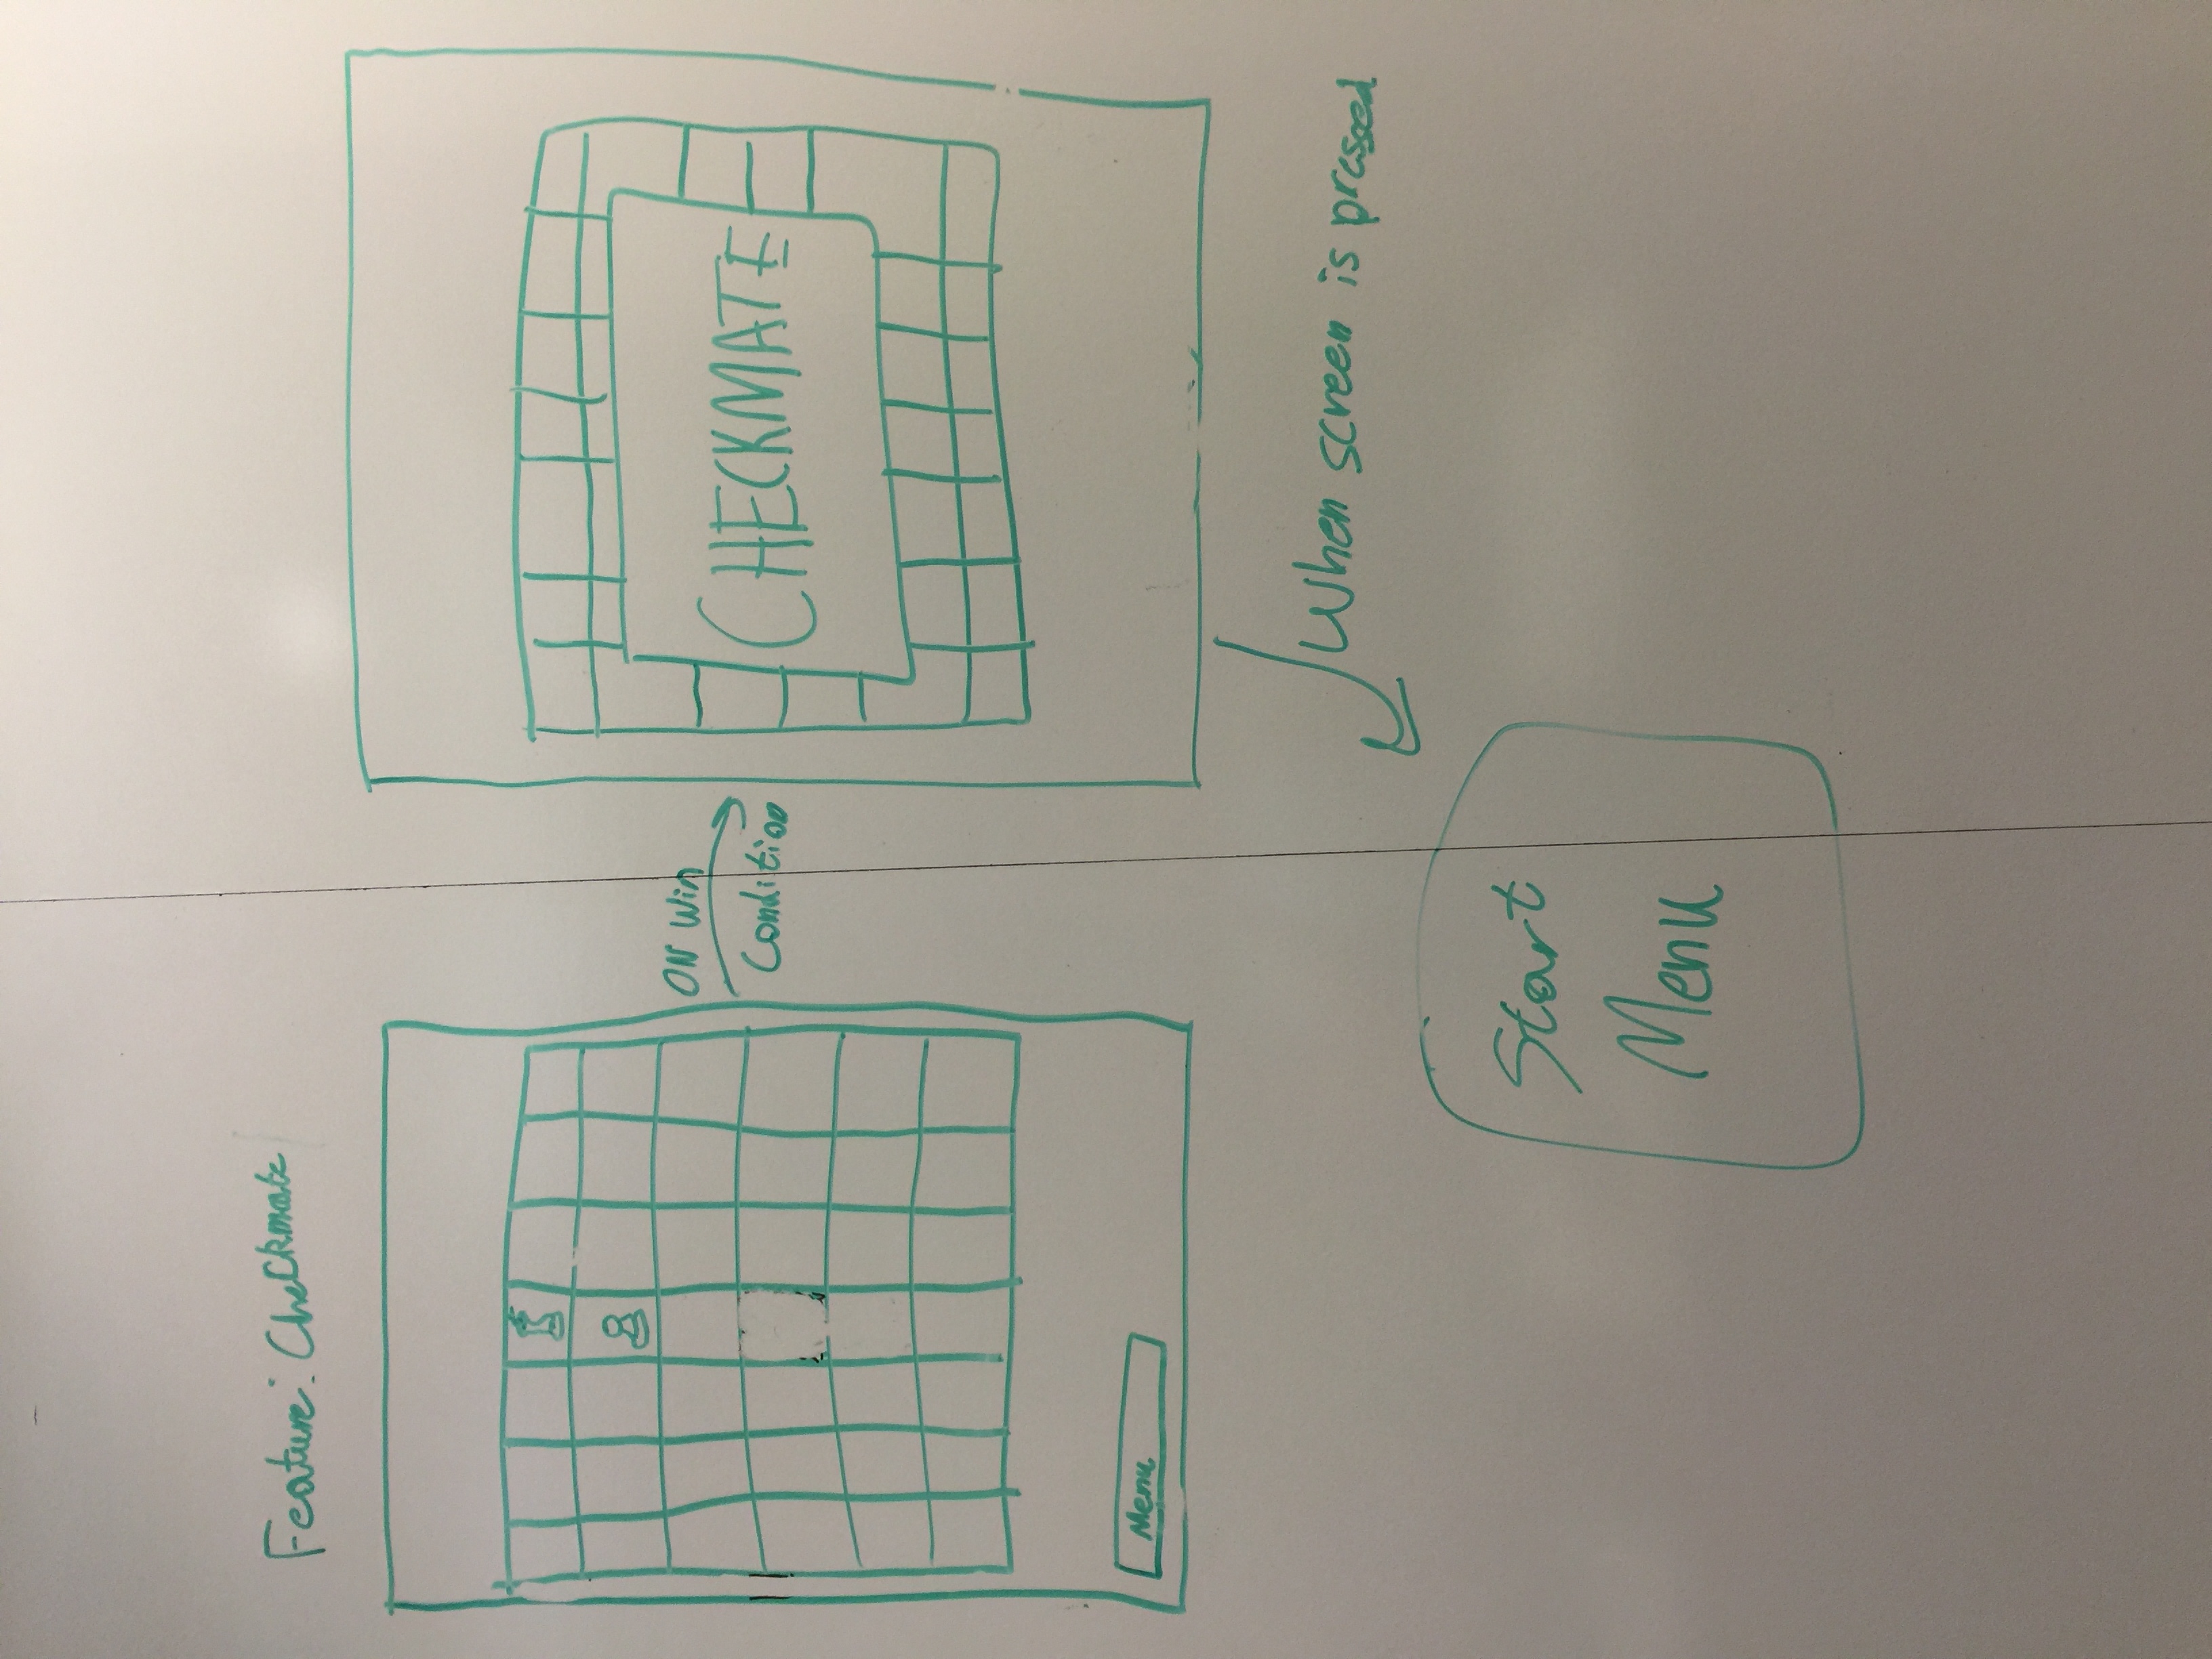 Feature: Checkmate
ON Win
Condition
CHECKMATE
Menu
When screen is pressed
Start
Menu